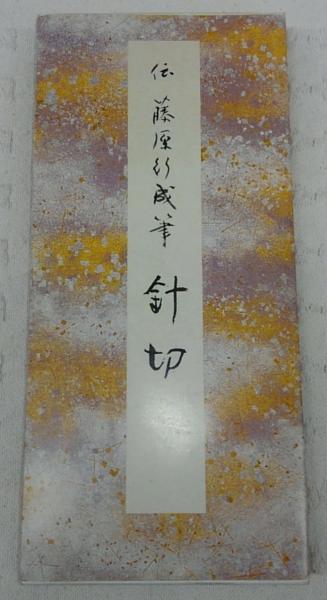 伝 藤原行成筆 針切